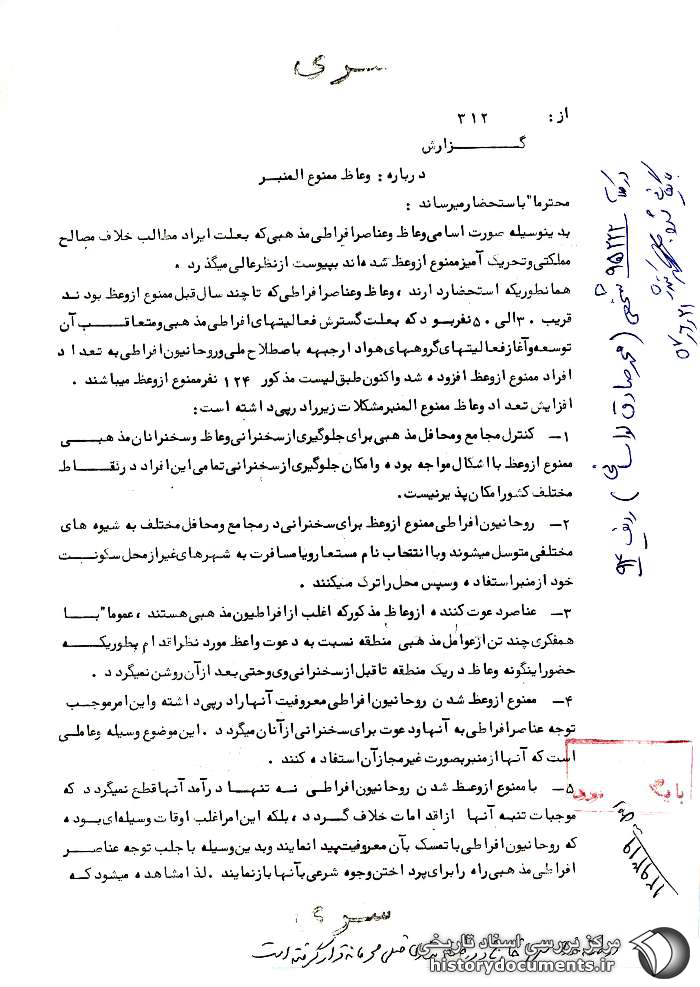 سری
از: ۳۱۲
گزارش
درباره: وعاظ ممنوع المنبر
محترما" باستحضار میرساند :
بدینوسیله صورت اسامی وعاظ وعناصر افراطی مذهبی که بعلت ایراد مطالب خلاف مصالح
مملکتی وتحریک آمیز ممنوع از وعظ شده اند بپیوست از نظر عالی میگذرد .
همانطوریکه استحضار دارند ، وعاظ وعناصر افراطی که تا چند سال قبل ممنوع از وعظ بودند
قریب ۳۰ الی ۵۰ نفر بود که بعلت گسترش فعالیتهای افراطی مذهبی ومتعاقب آن
توسعه وآغاز فعالیتهای گروههای هوادار جبهه باصطلاح ملی وروحانیون افراطی به تعداد
افراد ممنوع از وعظ افزوده شد واکنون طبق لیست مذکور ۱۲۴ نفر ممنوع از وعظ میباشند .
افزایش تعداد وعاظ ممنوع المنبر مشکلات زیر را درپی داشته است :
۱ـ کنترل مجامع ومحافل مذهبی برای جلوگیری از سخنرانی وعاظ وسخنرانان مذهبی
ممنوع از وعظ با اشکال مواجه بوده وامکان جلوگیری از سخنرانی تمامی این افراد در نقاط
مختلف کشور امکان پذیر نیست.
۲ـ روحانیون افراطی ممنوع از وعظ برای سخنرانی در مجامع ومحافل مختلف به شیوه های
مختلفی متوسل میشوند وبا انتخاب نام مستعار ویا مسافرت به شهرهای غیر از محل سکونت
خود از منبر استفاده وسپس محل را ترک میکنند .
۳ـ عناصر دعوت کننده از وعاظ مذکور که اغلب از افراطیون مذهبی هستند ، عموما" با
همفکری چند تن از عوامل مذهبی منطقه نسبت به دعوت واعظ مورد نظر اقدام بطوریکه
حضور اینگونه وعاظ در یک منطقه تا قبل از سخنرانی وی وحتی بعد از آن روشن نمیگردد .
۴ـ ممنوع از وعظ شدن روحانیون افراطی معروفیت آنها را درپی داشته واین امر موجب
توجه عناصر افراطی به آنها ودعوت برای سخنرانی از آنان میگردد . این موضوع وسیله وعاملی
است که آنها از منبر بصورت غیرمجاز آن استفاده کنند .
۵ـ با ممنوع از وعظ شدن روحانیون افراطی نه تنها درآمد آنها قطع نمیگردد که
موجبات تنبه آنها از اقدامات خلاف گردد ، بلکه این امر اغلب اوقات وسیله ای بوده
که روحانیون افراطی با تمسک بآن معروفیت پیدا نمایند وبدین وسیله با جلب توجه عناصر
افراطی مذهبی راه را برای پرداختن وجوه شرعی بآنها باز نمایند . لذا مشاهده میشود که
سری
در کلاسه ۹۵۲۲۲ شخصی (محمد صادق لواسانی) ردیف ۹۴
مرکز بررسی اسناد تاریخی
historydocuments.ir